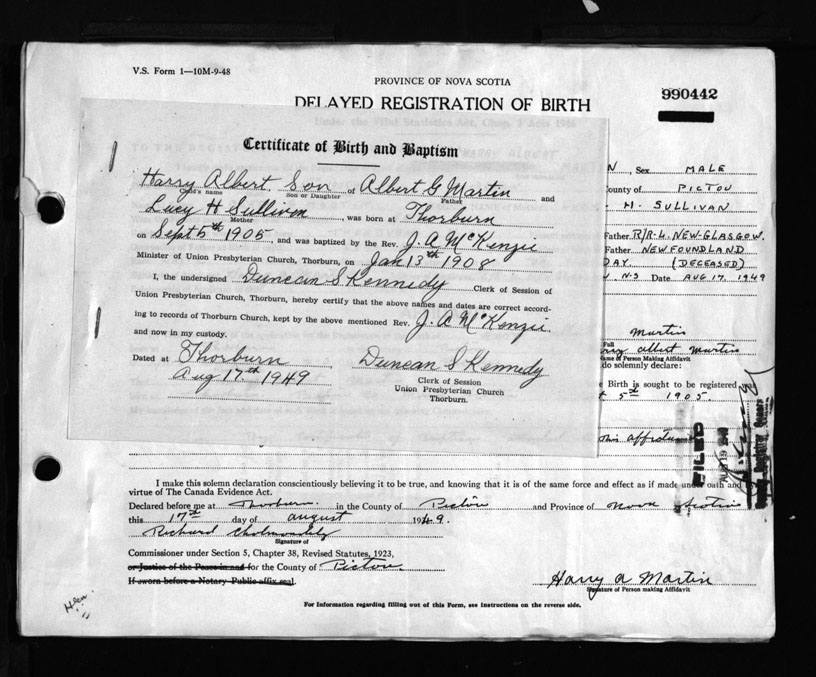 V.S. Form 1—10M-9-48
PROVINCE OF NOVA SCOTIA
990442
DELAYED REGISTRATION OF BIRTH
Certificate of Birth and Baptism
Harry Albert Son of Albert G Martin and
Child's name Son or Daughter Father
Lucy H Sullivan, was born at Thorburn
Mother
on Sept 5th 1905, and was baptized by the Rev. J. A McKenzie
Minister of Union Presbyterian Church, Thorburn, on Jan 13th 1908
I, the undersigned Duncan S Kennedy Clerk of Session of
Union Presbyterian Church, Thorburn, hereby certify that the above names and dates are correct accord-
ing to records of Thorburn Church, kept by the above mentioned Rev. J. A McKenzie
and now in my custody.
Dated at Thorburn, Duncan S Kennedy
Aug 17th 1949
Clerk of Session
Union Presbyterian Church
Thorburn.
N, Sex MALE
County of PICTOU
H. SULLIVAN
Father R/R-1. NEW-GLASGOW.
Father NEWFOUNDLAND
DAY (DECEASED)
N.S Date AUG 17, 1949
Martin
Full
rry Albert Martin
Name of Person Making Affidavit
do solemnly declare:
e Birth is sought to be registered was
5th 1905.
this
FILED
AUG 19
I make this solemn declaration conscientiously believing it to be true, and knowing that it is of the same force and effect as if made under oath and by
virtue of The Canada Evidence Act.
Declared before me at Thorburn in the County of Pictou and Province of Nova Scotia
this 17th day of August 1949.
Richard Cholmondely
Signature of
Commissioner under Section 5, Chapter 38, Revised Statutes, 1923,
or Justice of the Peace in and for the County of Pictou.
If sworn before a Notary Public affix seal.
Harry A Martin
Signature of Person making Affidavit
For Information regarding filling out of this Form, see Instructions on the reverse side.